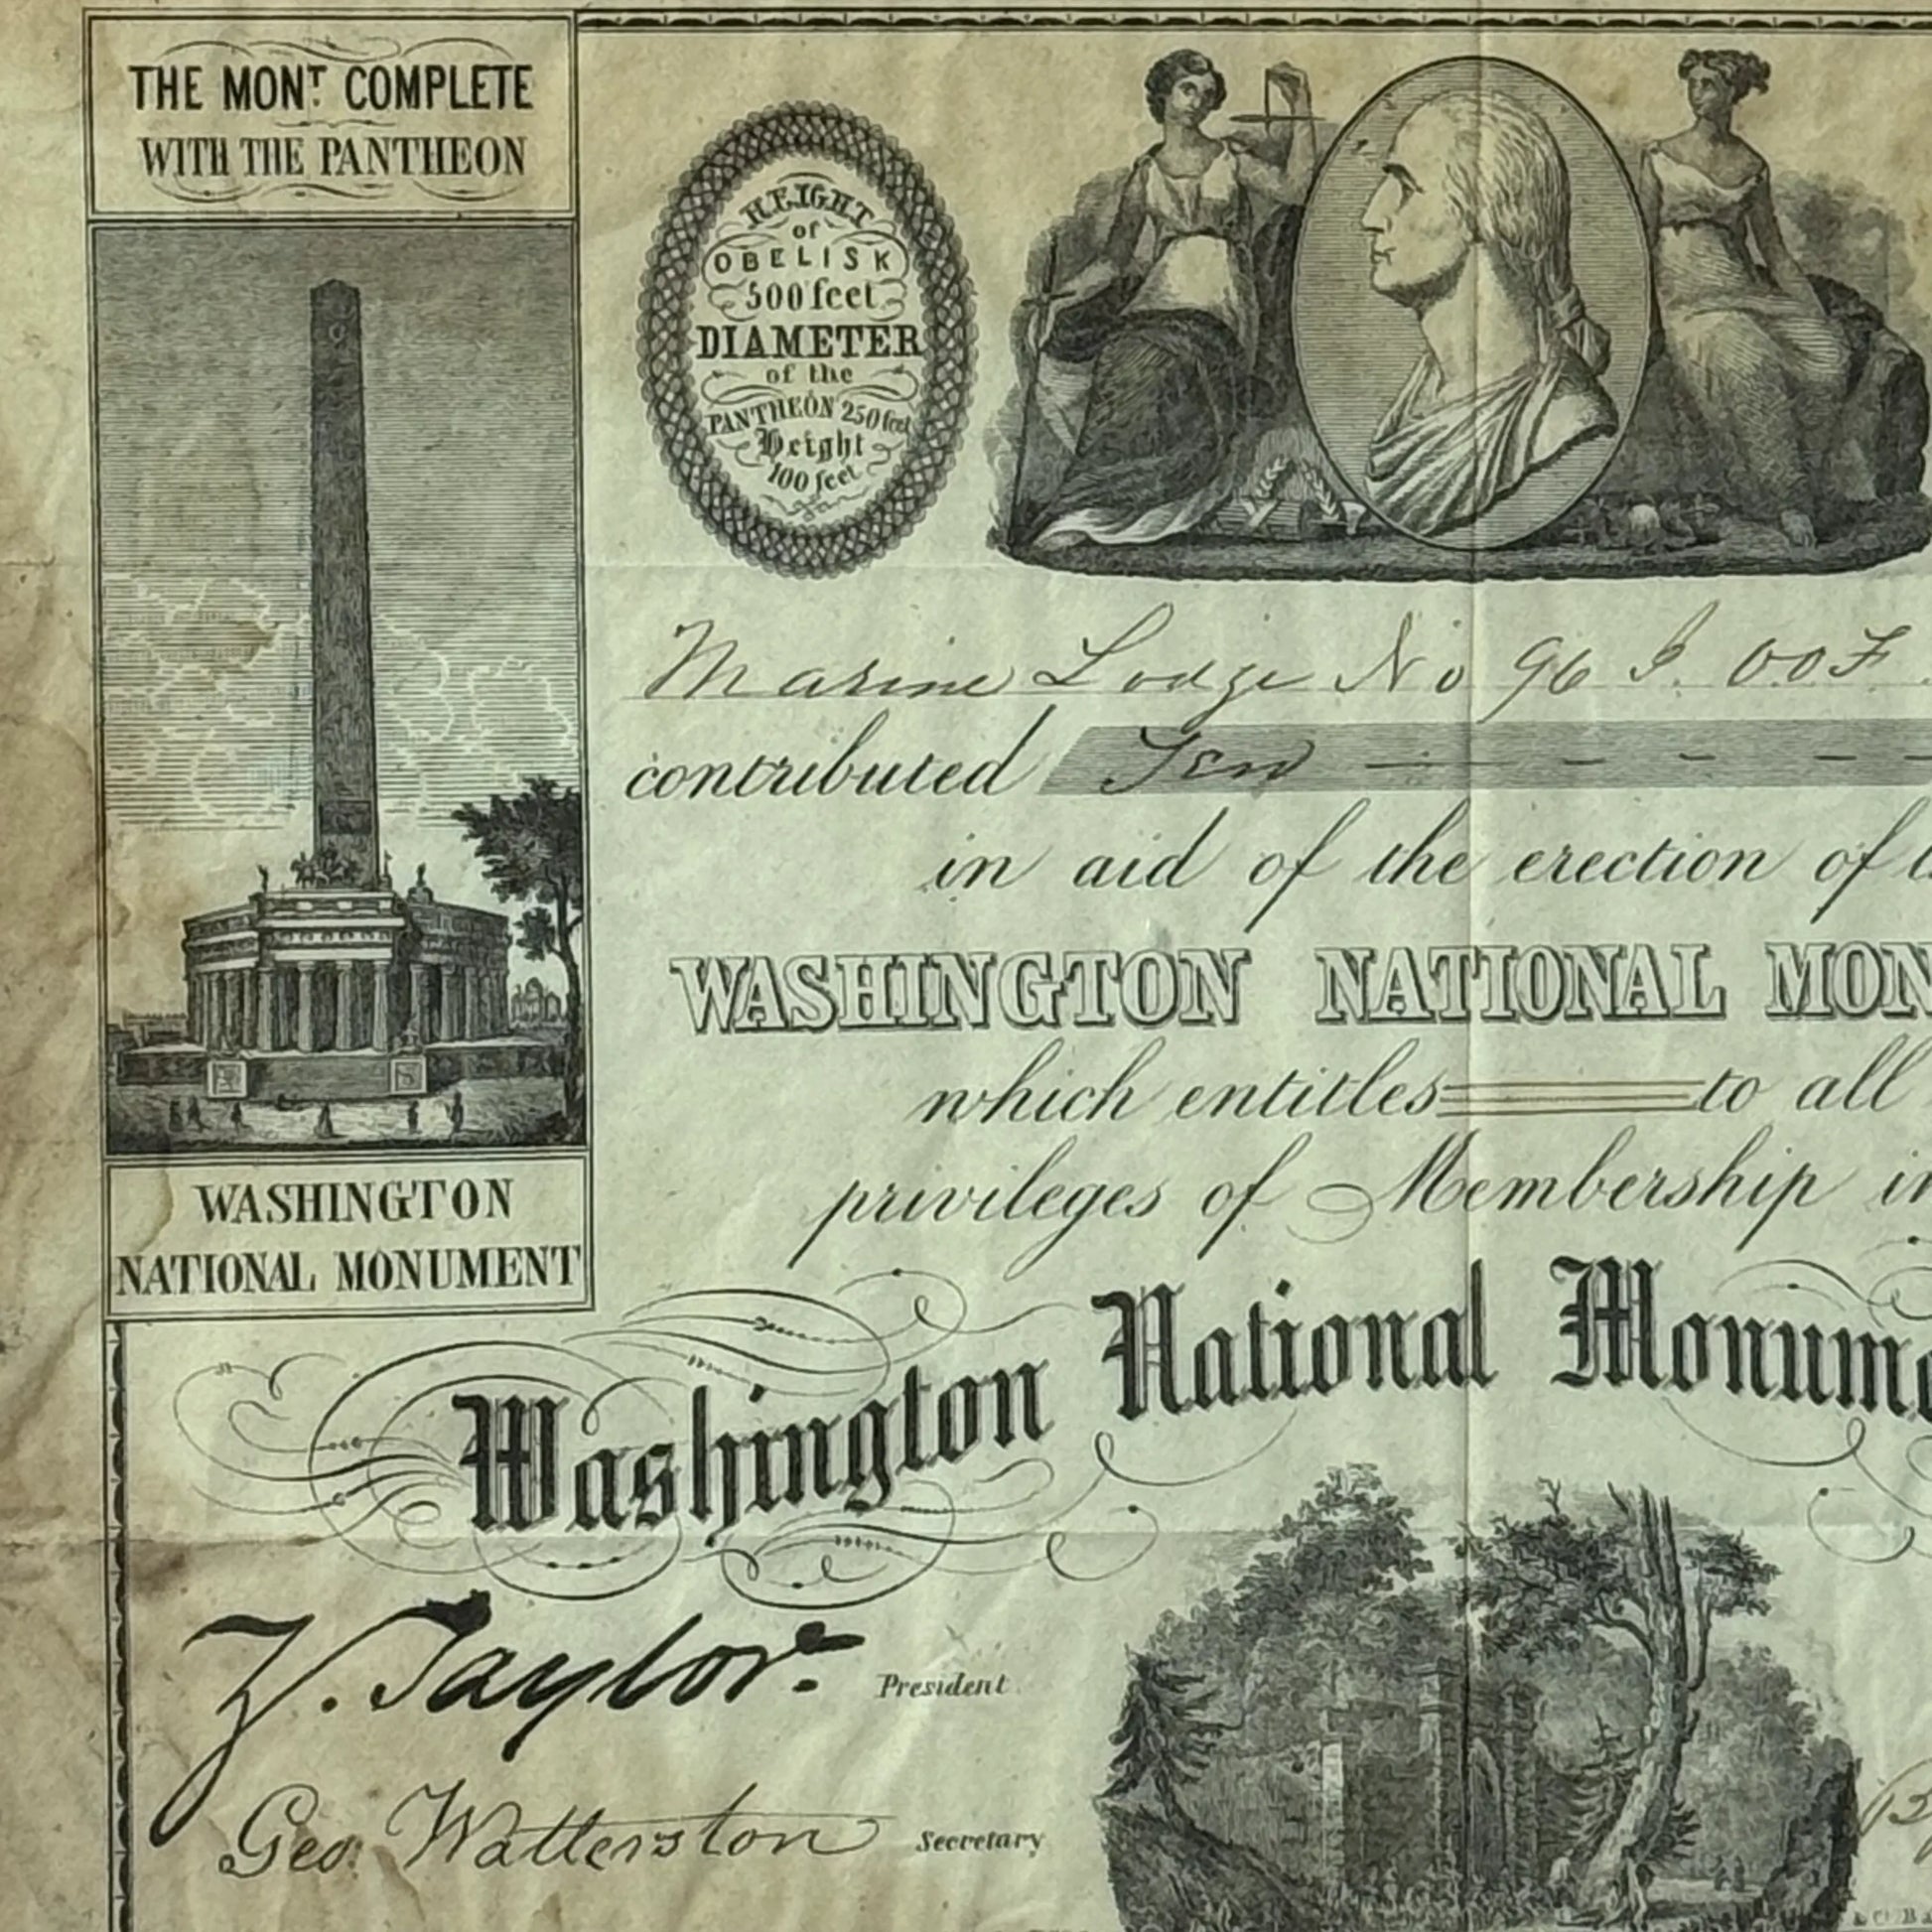 THE MONT. COMPLETE
WITH THE PANTHEON
HEIGHT
of
OBELISK
500 feet
DIAMETER
of the
PANTHEON 250 feet
Height
100 feet
Marine Lodge No 96 I. O.O.F.
contributed Ten
in aid of the erection of
WASHINGTON NATIONAL MON
which entitles to all
privileges of Membership in
WASHINGTON
NATIONAL MONUMENT
Washington National Monume
Z. Taylor. President.
Geo. Watterston Secretary